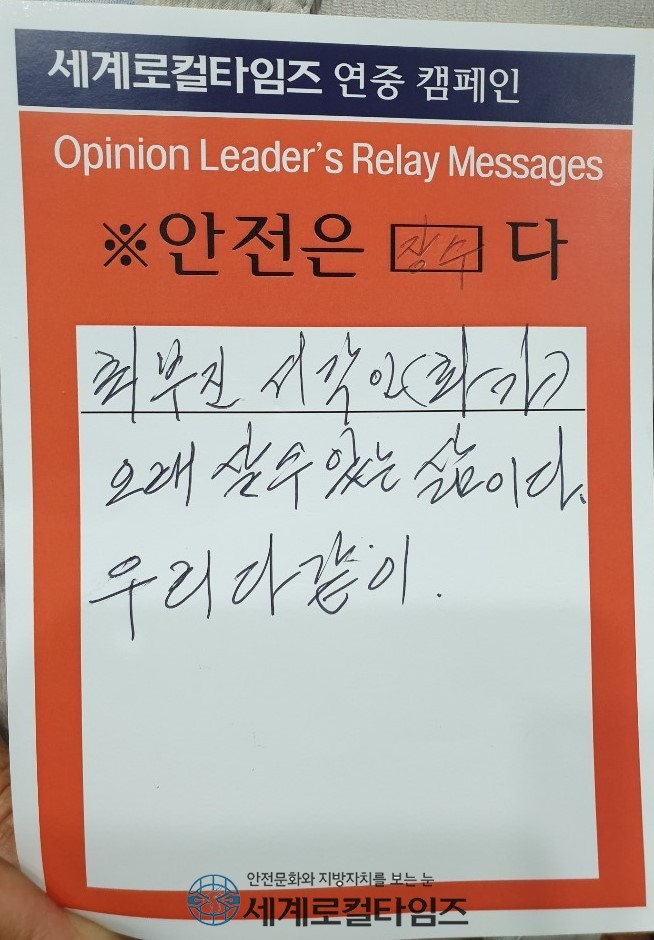 세계로컬타임즈 연중 캠페인
Opinion Leader's Relay Messages
※안전은 장수 다
최부진 서각인(화가)
오래 살수 있는 삶이다.
우리 다 같이.
안전문화와 지방자치를 보는 눈
세계로컬타임즈